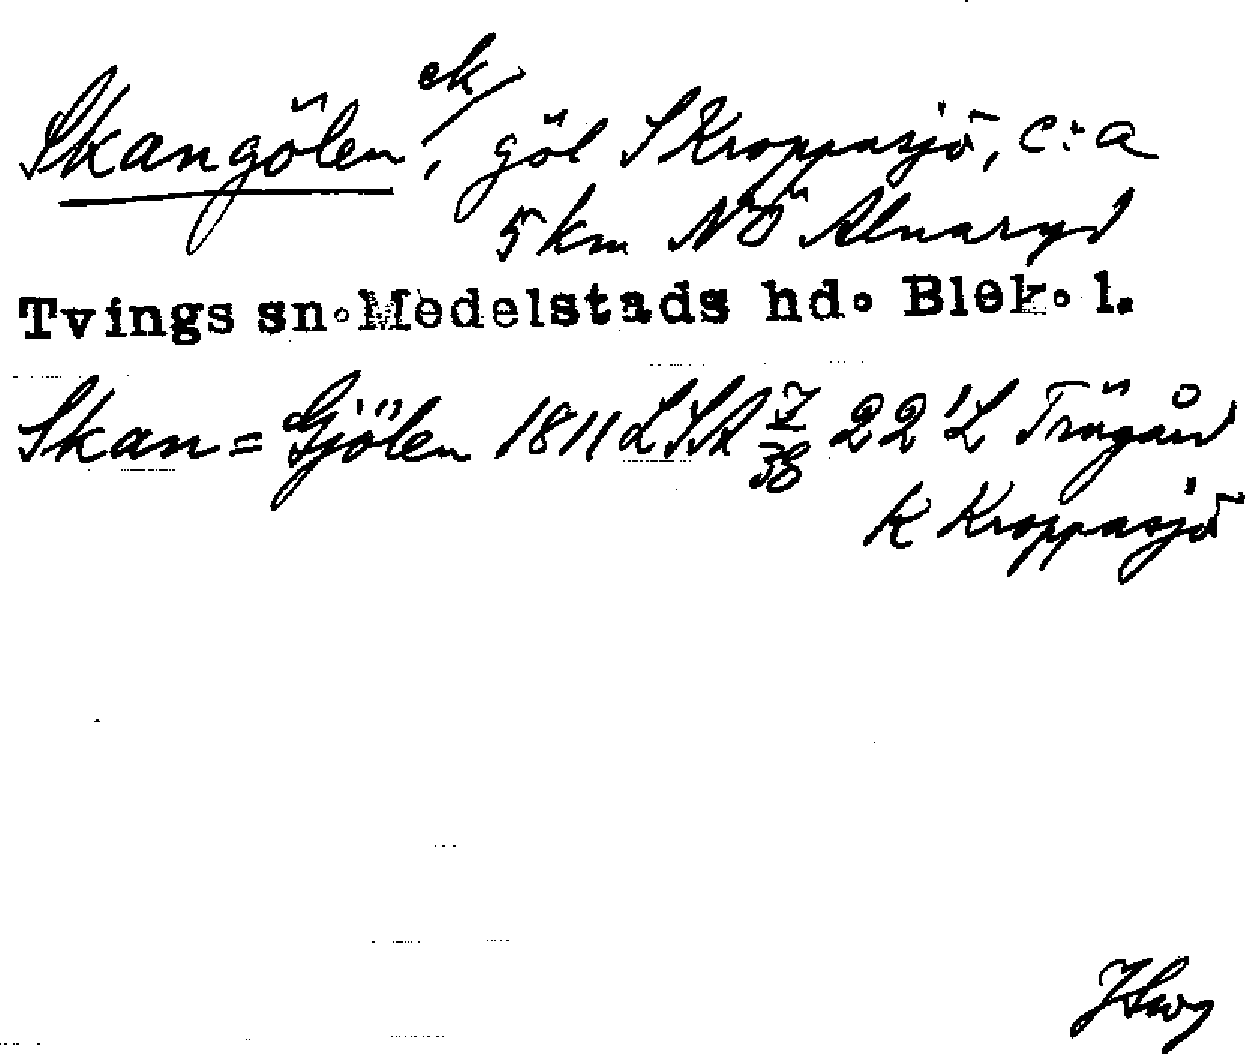 Skangölen ek/, göl S Kroppasjö, c:a
5 km NÖ Alnaryd
Tvings sn. Medelstads hd. Blek. l.
Skan=Gjölen 1811 LSA I/38 22 L Trägård
k Kroppasjö